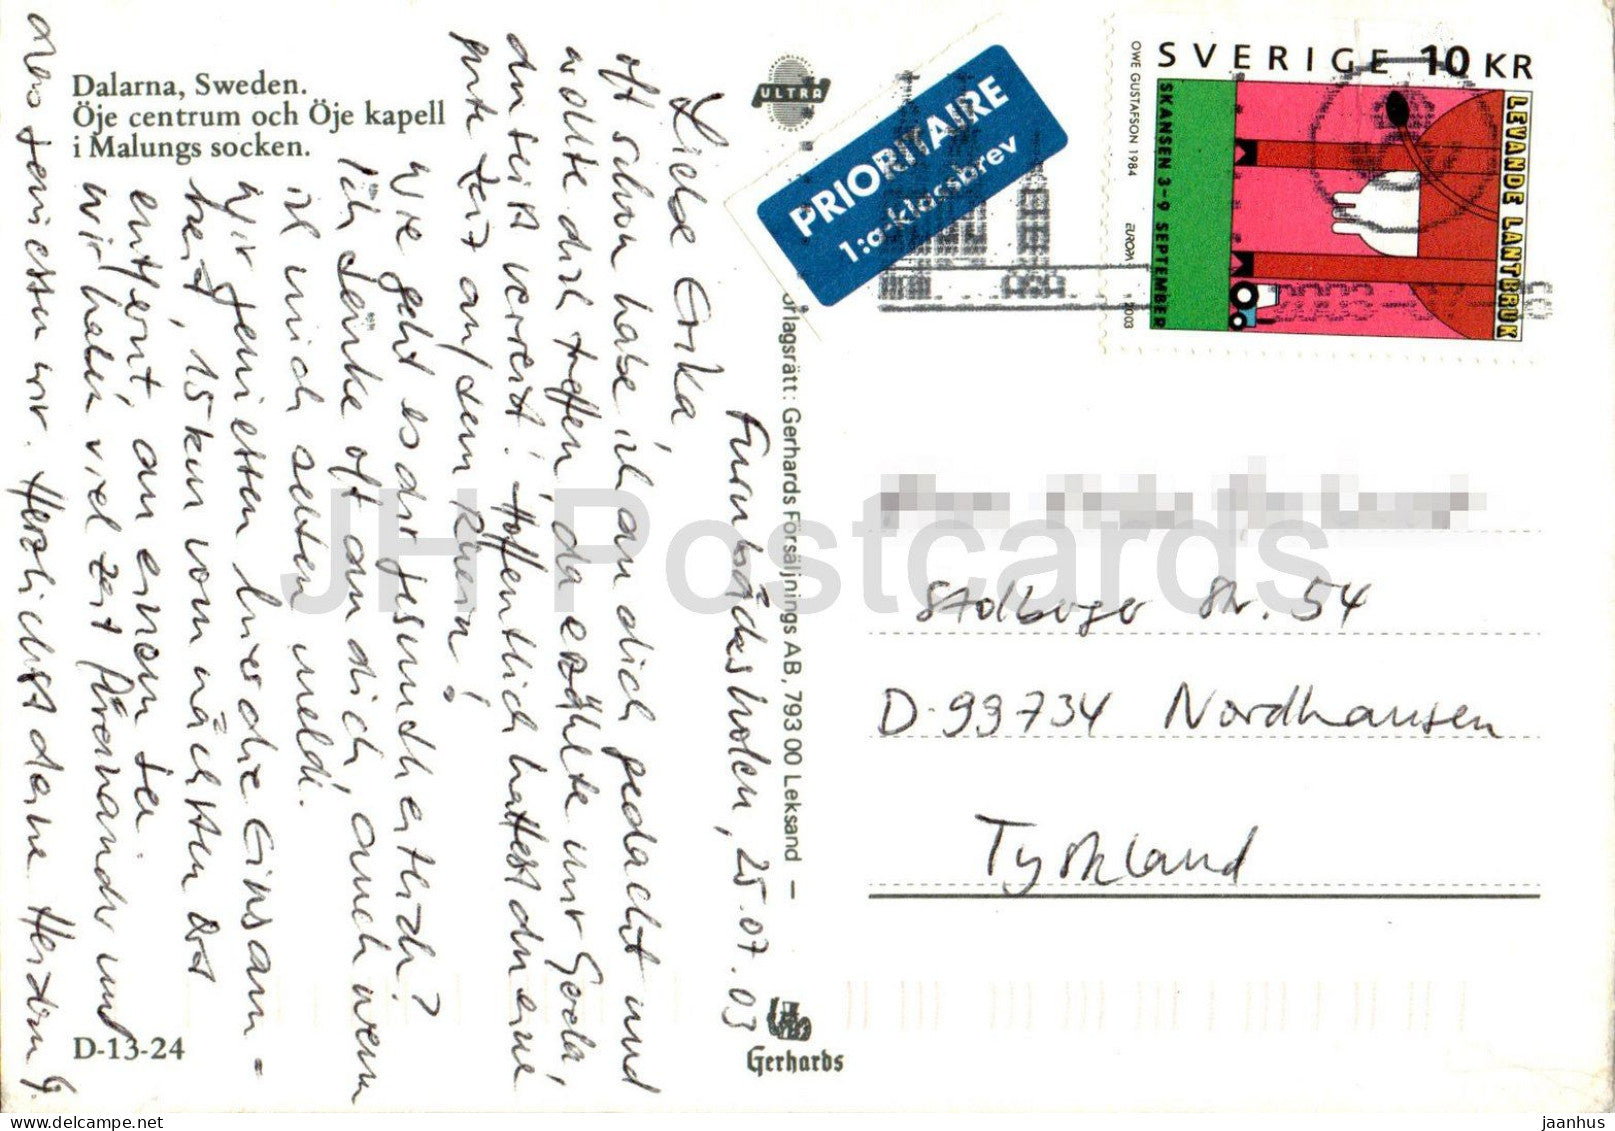 Dalarna, Sweden.
Öje centrum och Öje kapell
i Malungs socken.
Furnbäcksholen, 25.07.03
Liebe Erika,
oft schon habe ich an dich gedacht und
wollte dich treffen, da erzählte mir Gerda,
du seist verreist! Hoffentlich hattest du eine
gute Zeit auf dem Rhein!
Wie geht es dir gesundheitlich?
Ich denke oft an dich, auch wenn
ich mich selten melde.
Wir genießen hier die Einsam-
keit, 15 km vom nächsten Ort
entfernt, an einem See.
Wir haben viel Zeit füreinander und
das genießen wir. Herzlichst deine
D-13-24
ULTRA
Förlagsrätt: Gerhards Försäljnings AB, 793 00 Leksand
Gerhards
PRIORITAIRE
1:a-klassbrev
SVERIGE 10 KR
OWE GUSTAFSON 1984
EUROPA
2003
SKANSEN 3-9 SEPTEMBER
LEVANDE LANTBRUK
Stolberger Str. 54
D-99734 Nordhausen
Tyskland
JH Postcards
jaanhus